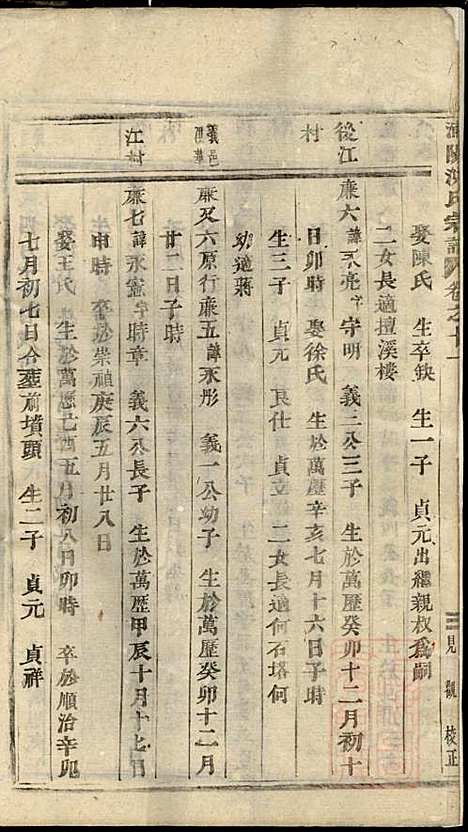 氏宗譜 卷之十一
三 見觀校正
娶陳氏 生卒缺 生一子 貞元出繼親叔爲嗣
二女長適擅溪樓
後江村
廉六 諱永亮字守明 義三公三子 生於萬歷癸卯十二月初十
日卯時 娶徐氏 生於萬歷辛亥七月十六日子時
生三子 貞元 良仕 貞立 二女長適何石塔何
幼適蔣
義邑
廉又六原行廉五諱永彤 義一公幼子 生於萬歷癸卯十二月
廿二日子時
江村
廉七 諱永憲字時章 義六公長子 生於萬歷甲辰十月十七日
申時 卒於崇禎庚辰五月廿八日
娶王氏 生於萬歷己酉五月初八日卯時 卒於順治辛卯
七月初七日合葬前墳頭 生二子 貞元 貞祥